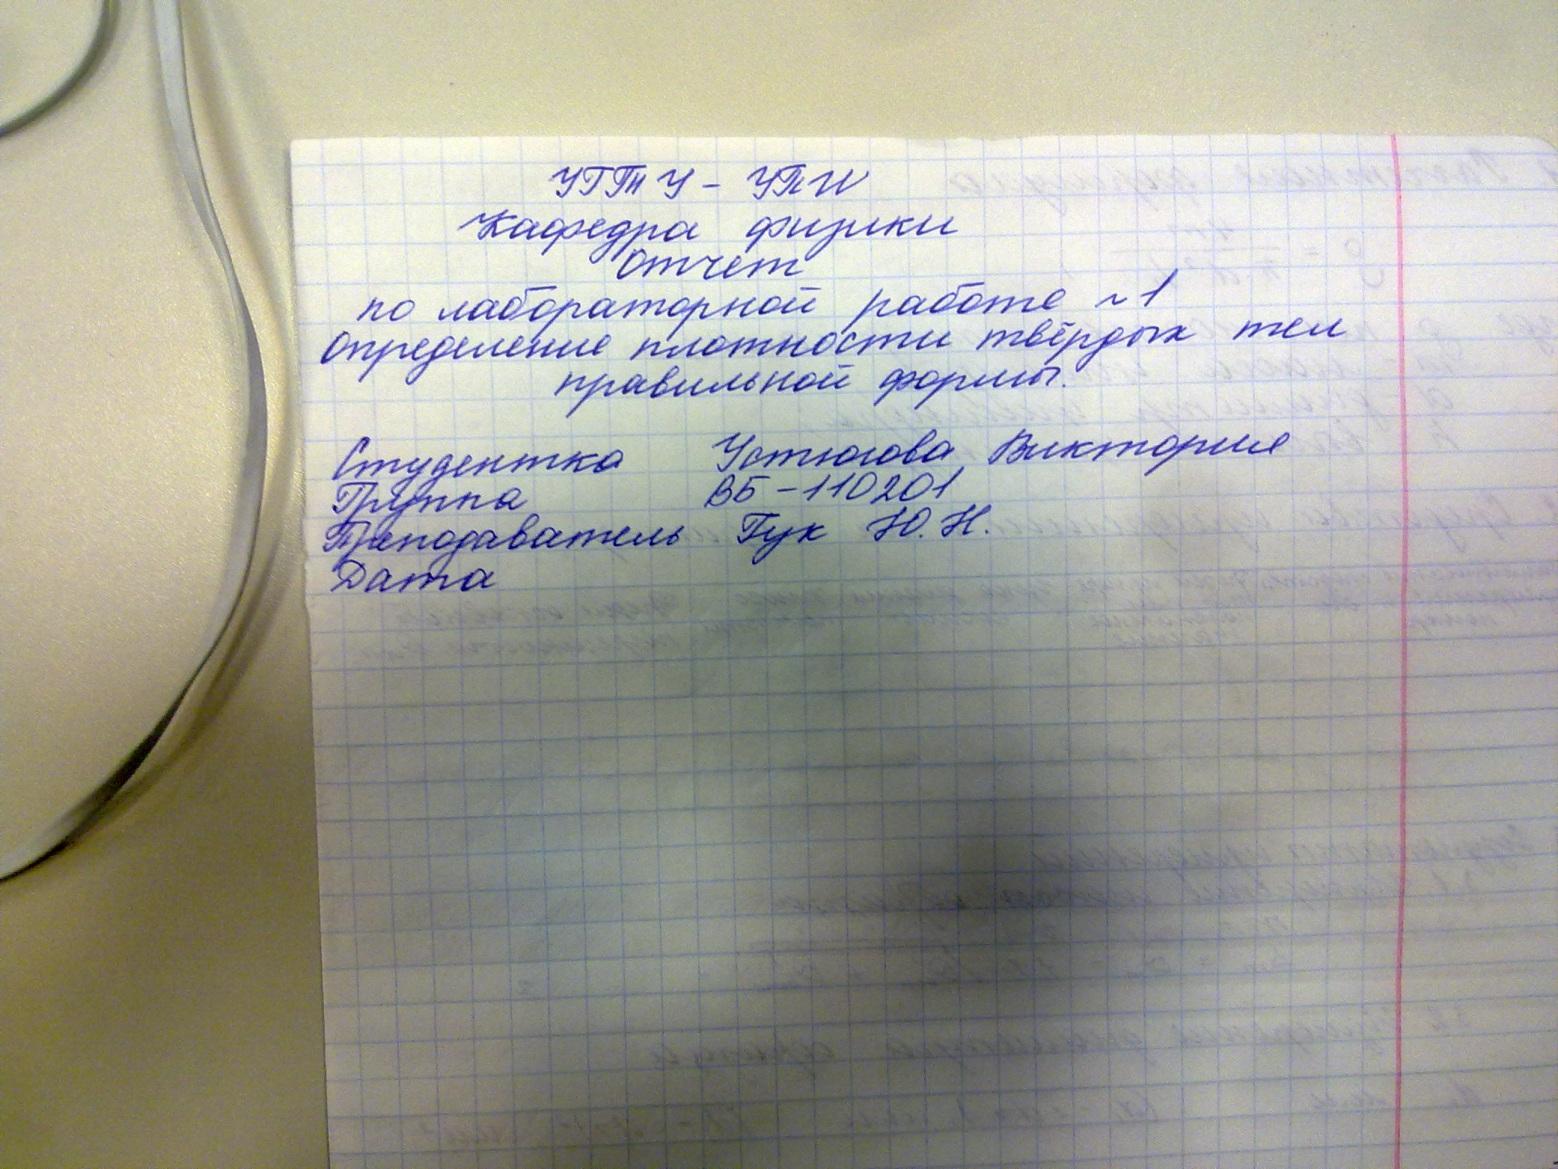 УГТУ - УПИ
Кафедра физики
Отчет
по лабораторной работе №1
Определение плотности твёрдых тел
правильной формы.
Студентка Устюгова Виктория
Группа ВБ-110201
Преподаватель Гук Ю.Н.
Дата